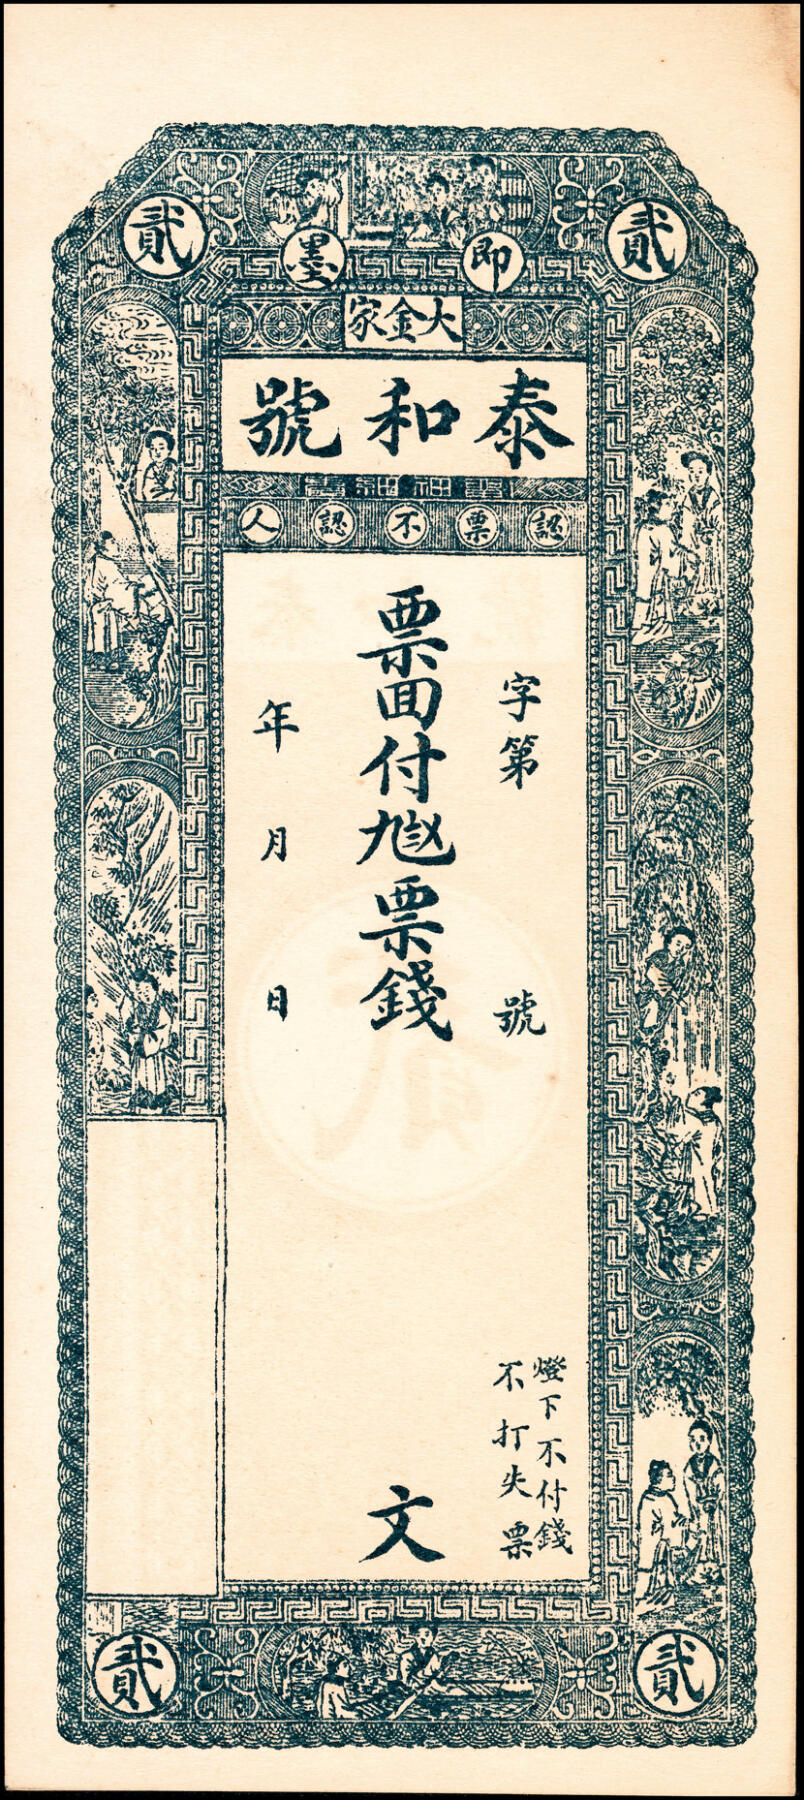 貳 貳
即墨
大金家
泰和號
認票不認人
字第 號
票回付𠃵票錢 文
年 月 日
燈下不付錢
不打失票
貳
貳 貳